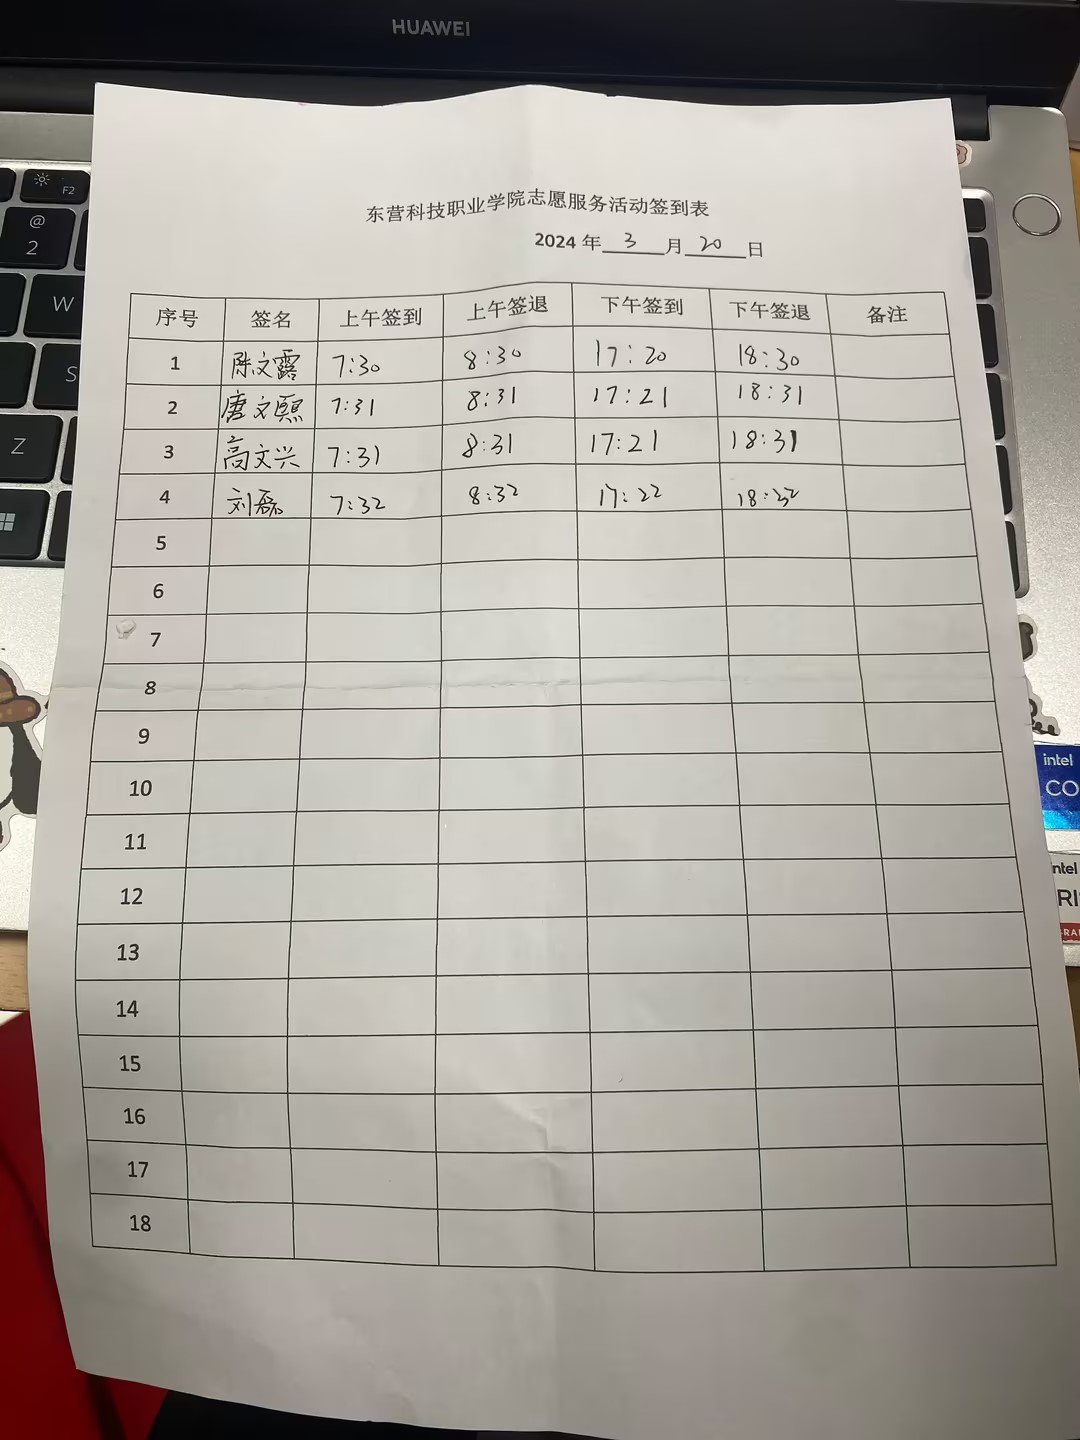 HUAWEI
F2
@
2
W
S
Z
东营科技职业学院志愿服务活动签到表
2024 年 3 月 20 日
序号 签名 上午签到 上午签退 下午签到 下午签退 备注
1 陈文露 7:30 8:30 17:20 18:30
2 唐文熙 7:31 8:31 17:21 18:31
3 高文兴 7:31 8:31 17:21 18:31
4 刘磊 7:32 8:32 17:22 18:32
5
6
7
8
9
10
11
12
13
14
15
16
17
18
intel
CO
intel